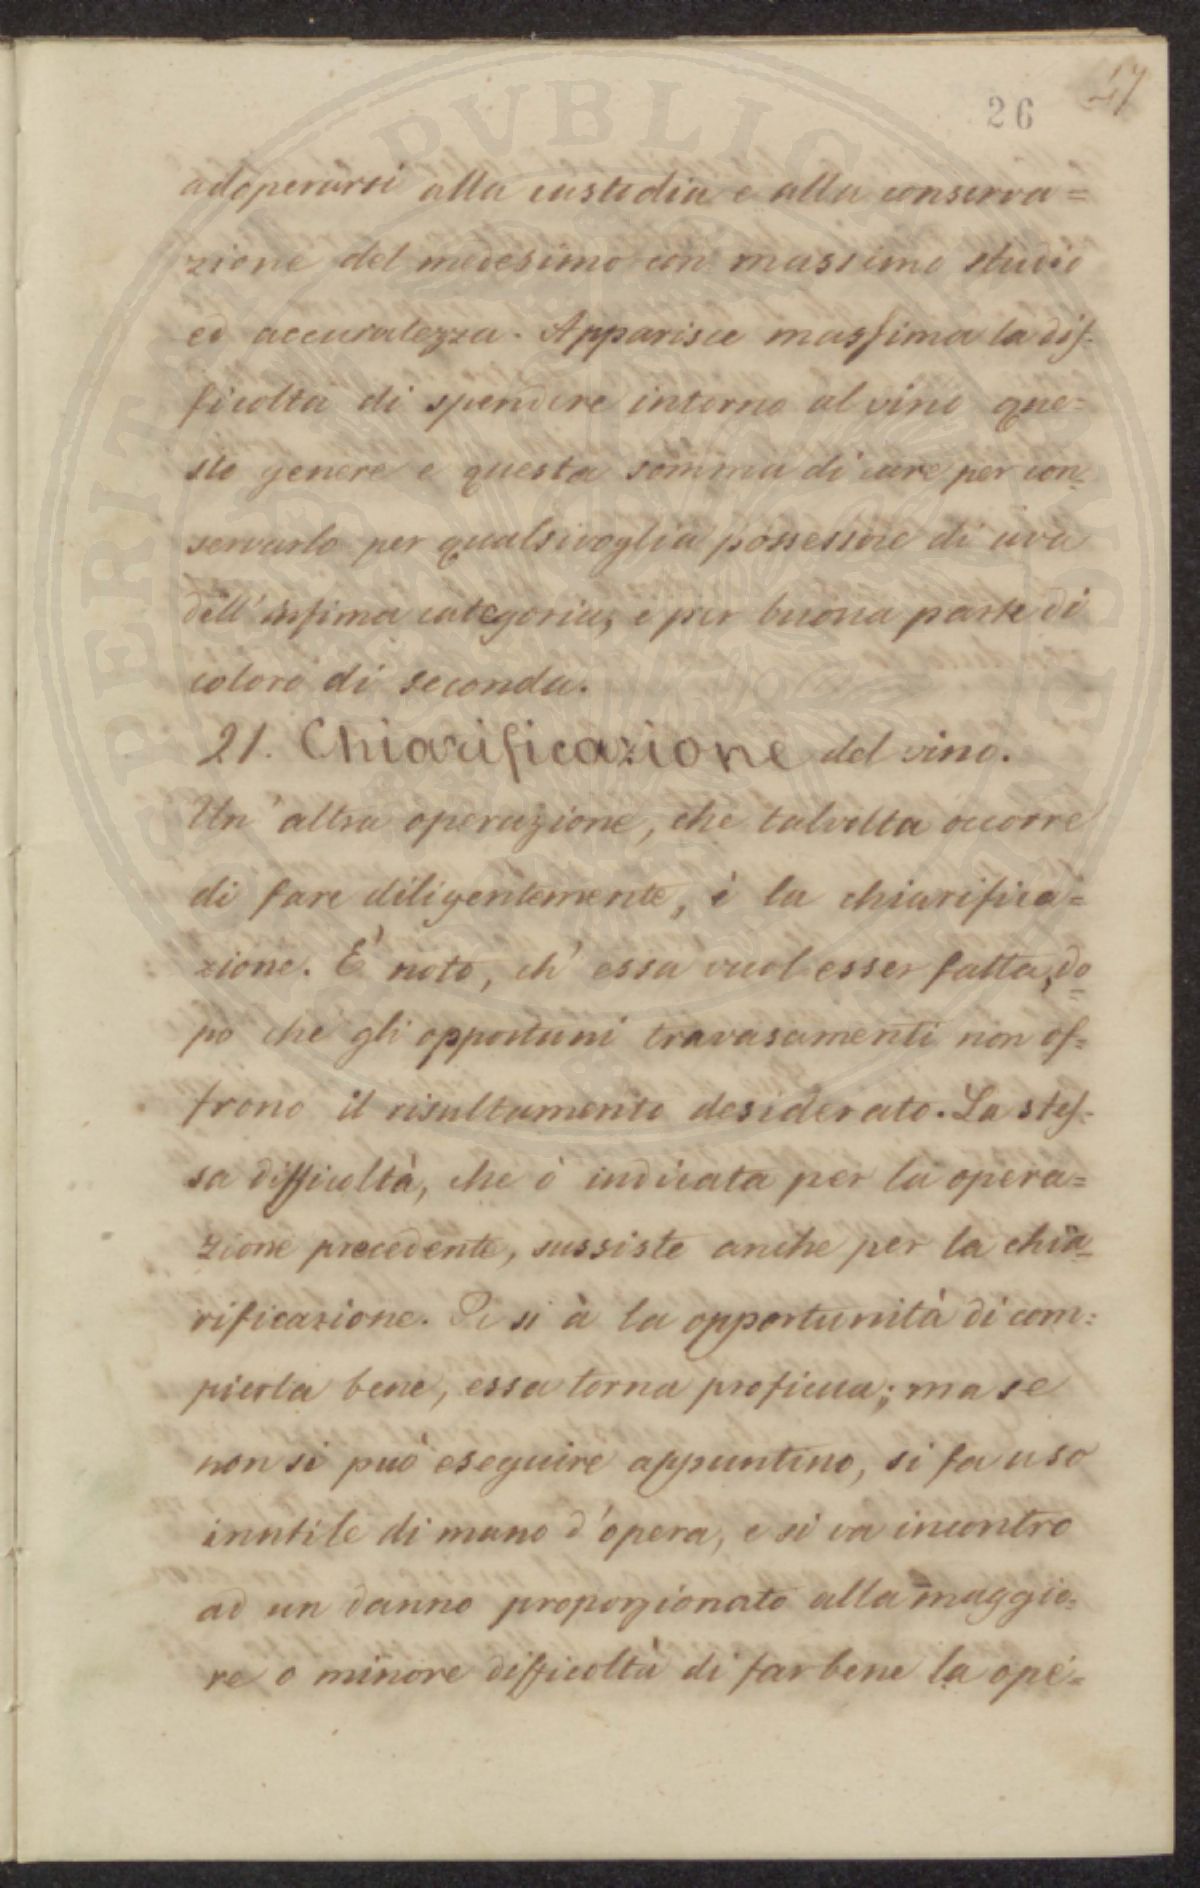 27
26
adoperarsi alla custodia e alla conserva=
zione del medesimo con massimo studio
ed accuratezza. Apparisce massima la dif-
ficoltà di spendere intorno al vino que=
sto genere e questa somma di cure per con=
servarlo per qualsivoglia possessore di uva
dell'infima categoria, e per buona parte di
coloro di seconda.
21. Chiarificazione del vino.
Un'altra operazione, che talvolta occorre
di fare diligentemente, è la chiarifica=
zione. È noto, ch'essa vuol esser fatta, do=
po che gli opportuni travasamenti non of=
frono il risultamento desiderato. La stes-
sa difficoltà, che è indicata per la opera=
zione precedente, sussiste anche per la chia=
rificazione. Se si à la opportunità di com=
pierla bene, essa torna proficua; ma se
non si può eseguire appuntino, si fa uso
inutile di mano d'opera, e si va incontro
ad un danno proporzionato alla maggio=
re o minore difficoltà di far bene la ope=